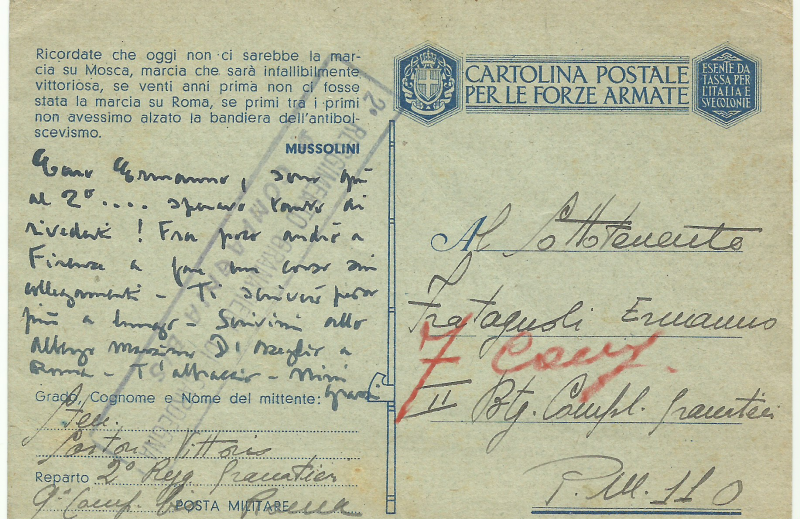 Ricordate che oggi non ci sarebbe la mar-
cia su Mosca, marcia che sarà infallibilmente
vittoriosa, se venti anni prima non ci fosse
stata la marcia su Roma, se primi tra i primi
non avessimo alzato la bandiera dell'antibol-
scevismo.
MUSSOLINI
Caro Ermanno, sono qui
al 2º .... speravo tanto di
rivederti ! Fra poco andrò a
Firenze a fare un corso sui
collegamenti - Ti scriverò presto
più a lungo - Scrivimi allo
Albergo Massimo D'Azeglio a
Roma - T'abbraccio -
Grado, Cognome e Nome del mittente:
Vittorio
Reparto 2º Regg granatieri
9ª Comp. POSTA MILITARE Roma
2º REGGIMENTO GRANATIERI DI SARDEGNA
CARTOLINA POSTALE
PER LE FORZE ARMATE
ESENTE DA
TASSA PER
L'ITALIA E
SUE COLONIE
Al Sottotenente
Fratagnoli Ermanno
7 Comp.
II Btg. Compl. granatieri
P.M. 110